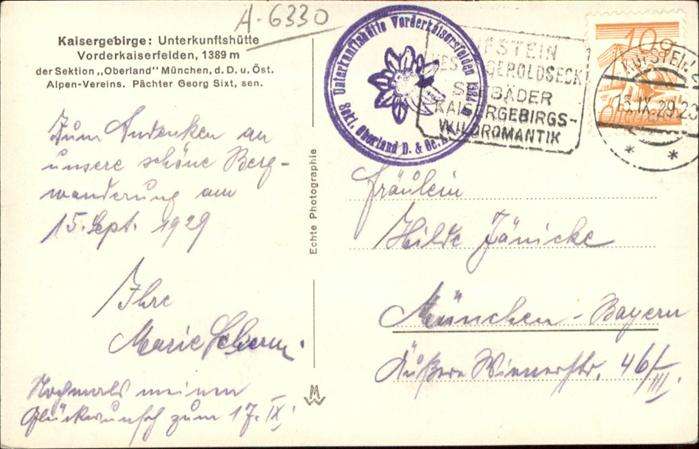 A-6330
Kaisergebirge: Unterkunftshütte
Vorderkaiserfelden, 1389 m
der Sektion „Oberland“ München, d. D. u. Öst.
Alpen-Vereins. Pächter Georg Sixt, sen.
Zum Andenken an
unsere schöne Berg-
wanderung am
15. Sept. 1929
Ihre
Marie
Nochmals meinen
Glückwunsch zum 17. IX!
Echte Photographie
Unterkunftshütte Vorderkaiserfelden
Sekt. Oberland D. &
KUFSTEIN
GEROLDSECK
BÄDER
KAISERGEBIRGS-
WILDROMANTIK
10g
KUFSTEIN
15.IX.29.23
Fräulein
Hilde Jänicke
München-Bayern
Äußere Wienerstr. 46/III.